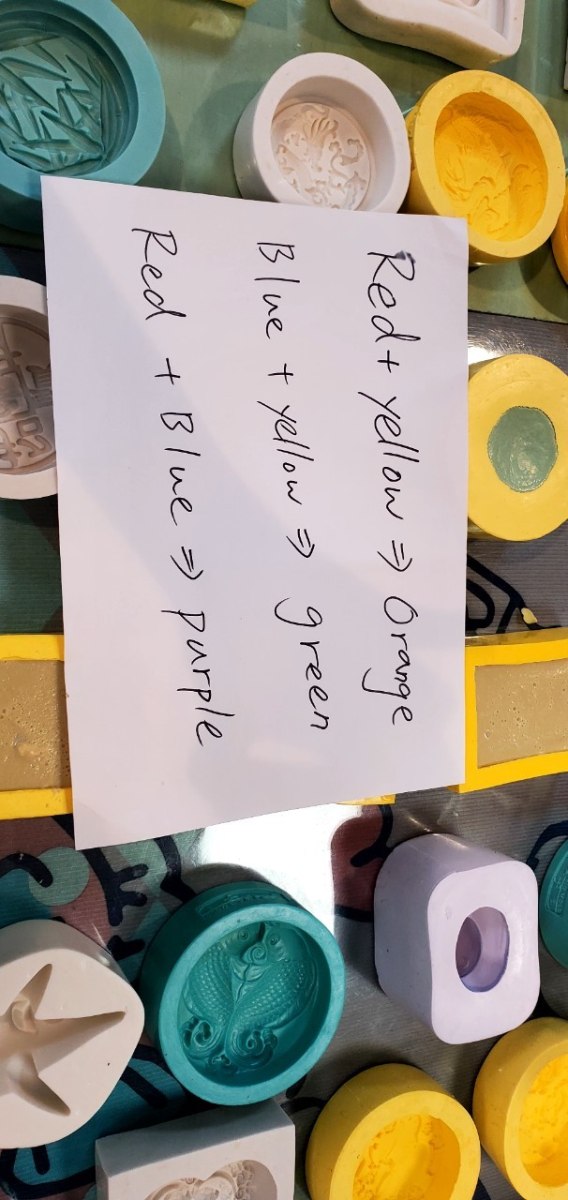 Red + yellow ⇒ Orange
Blue + yellow ⇒ green
Red + Blue ⇒ purple